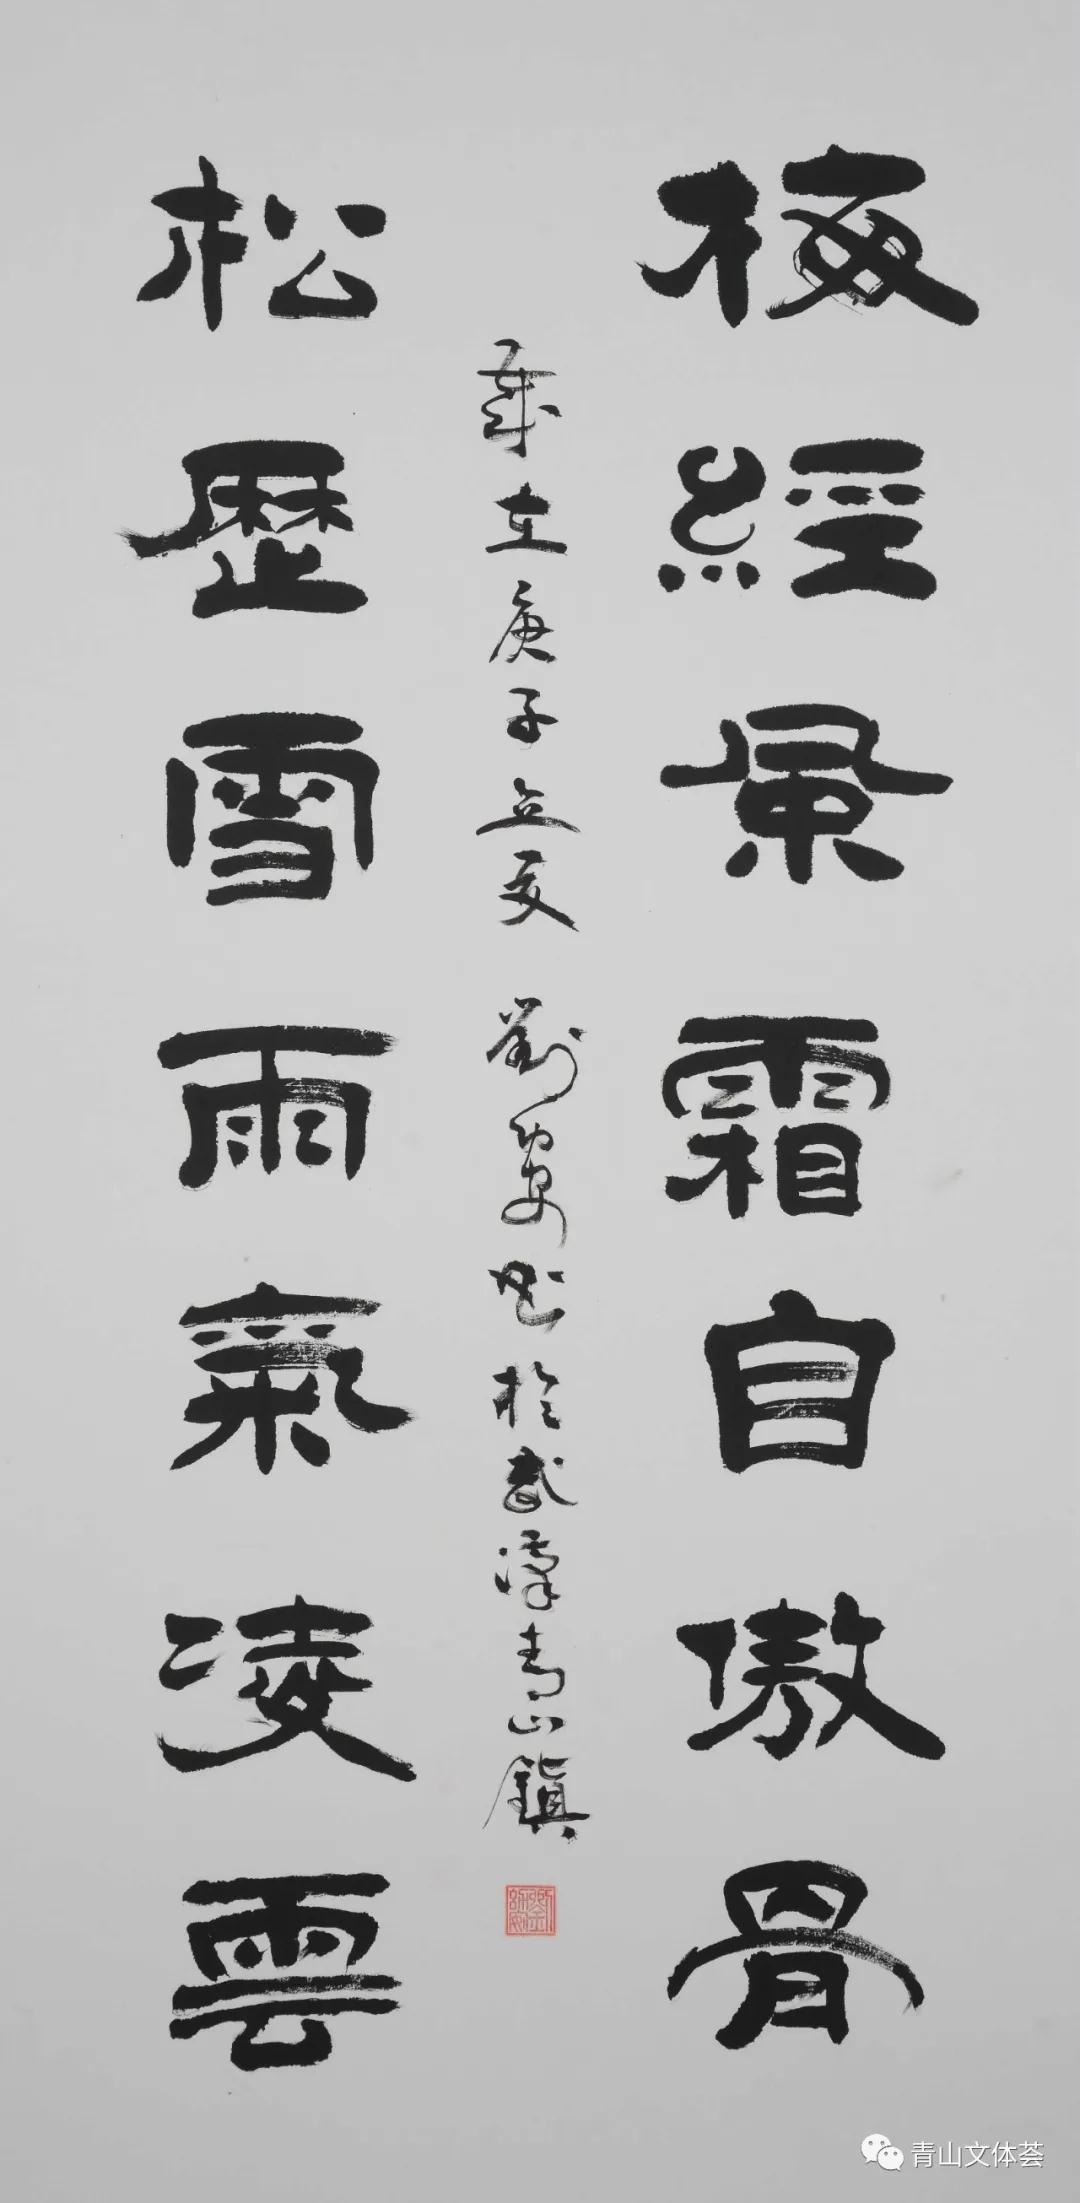 梅經風霜自傲骨
松歷雪雨氣凌雲
歲在庚子立夏 劉安書於武漢青山鎮
青山文体荟